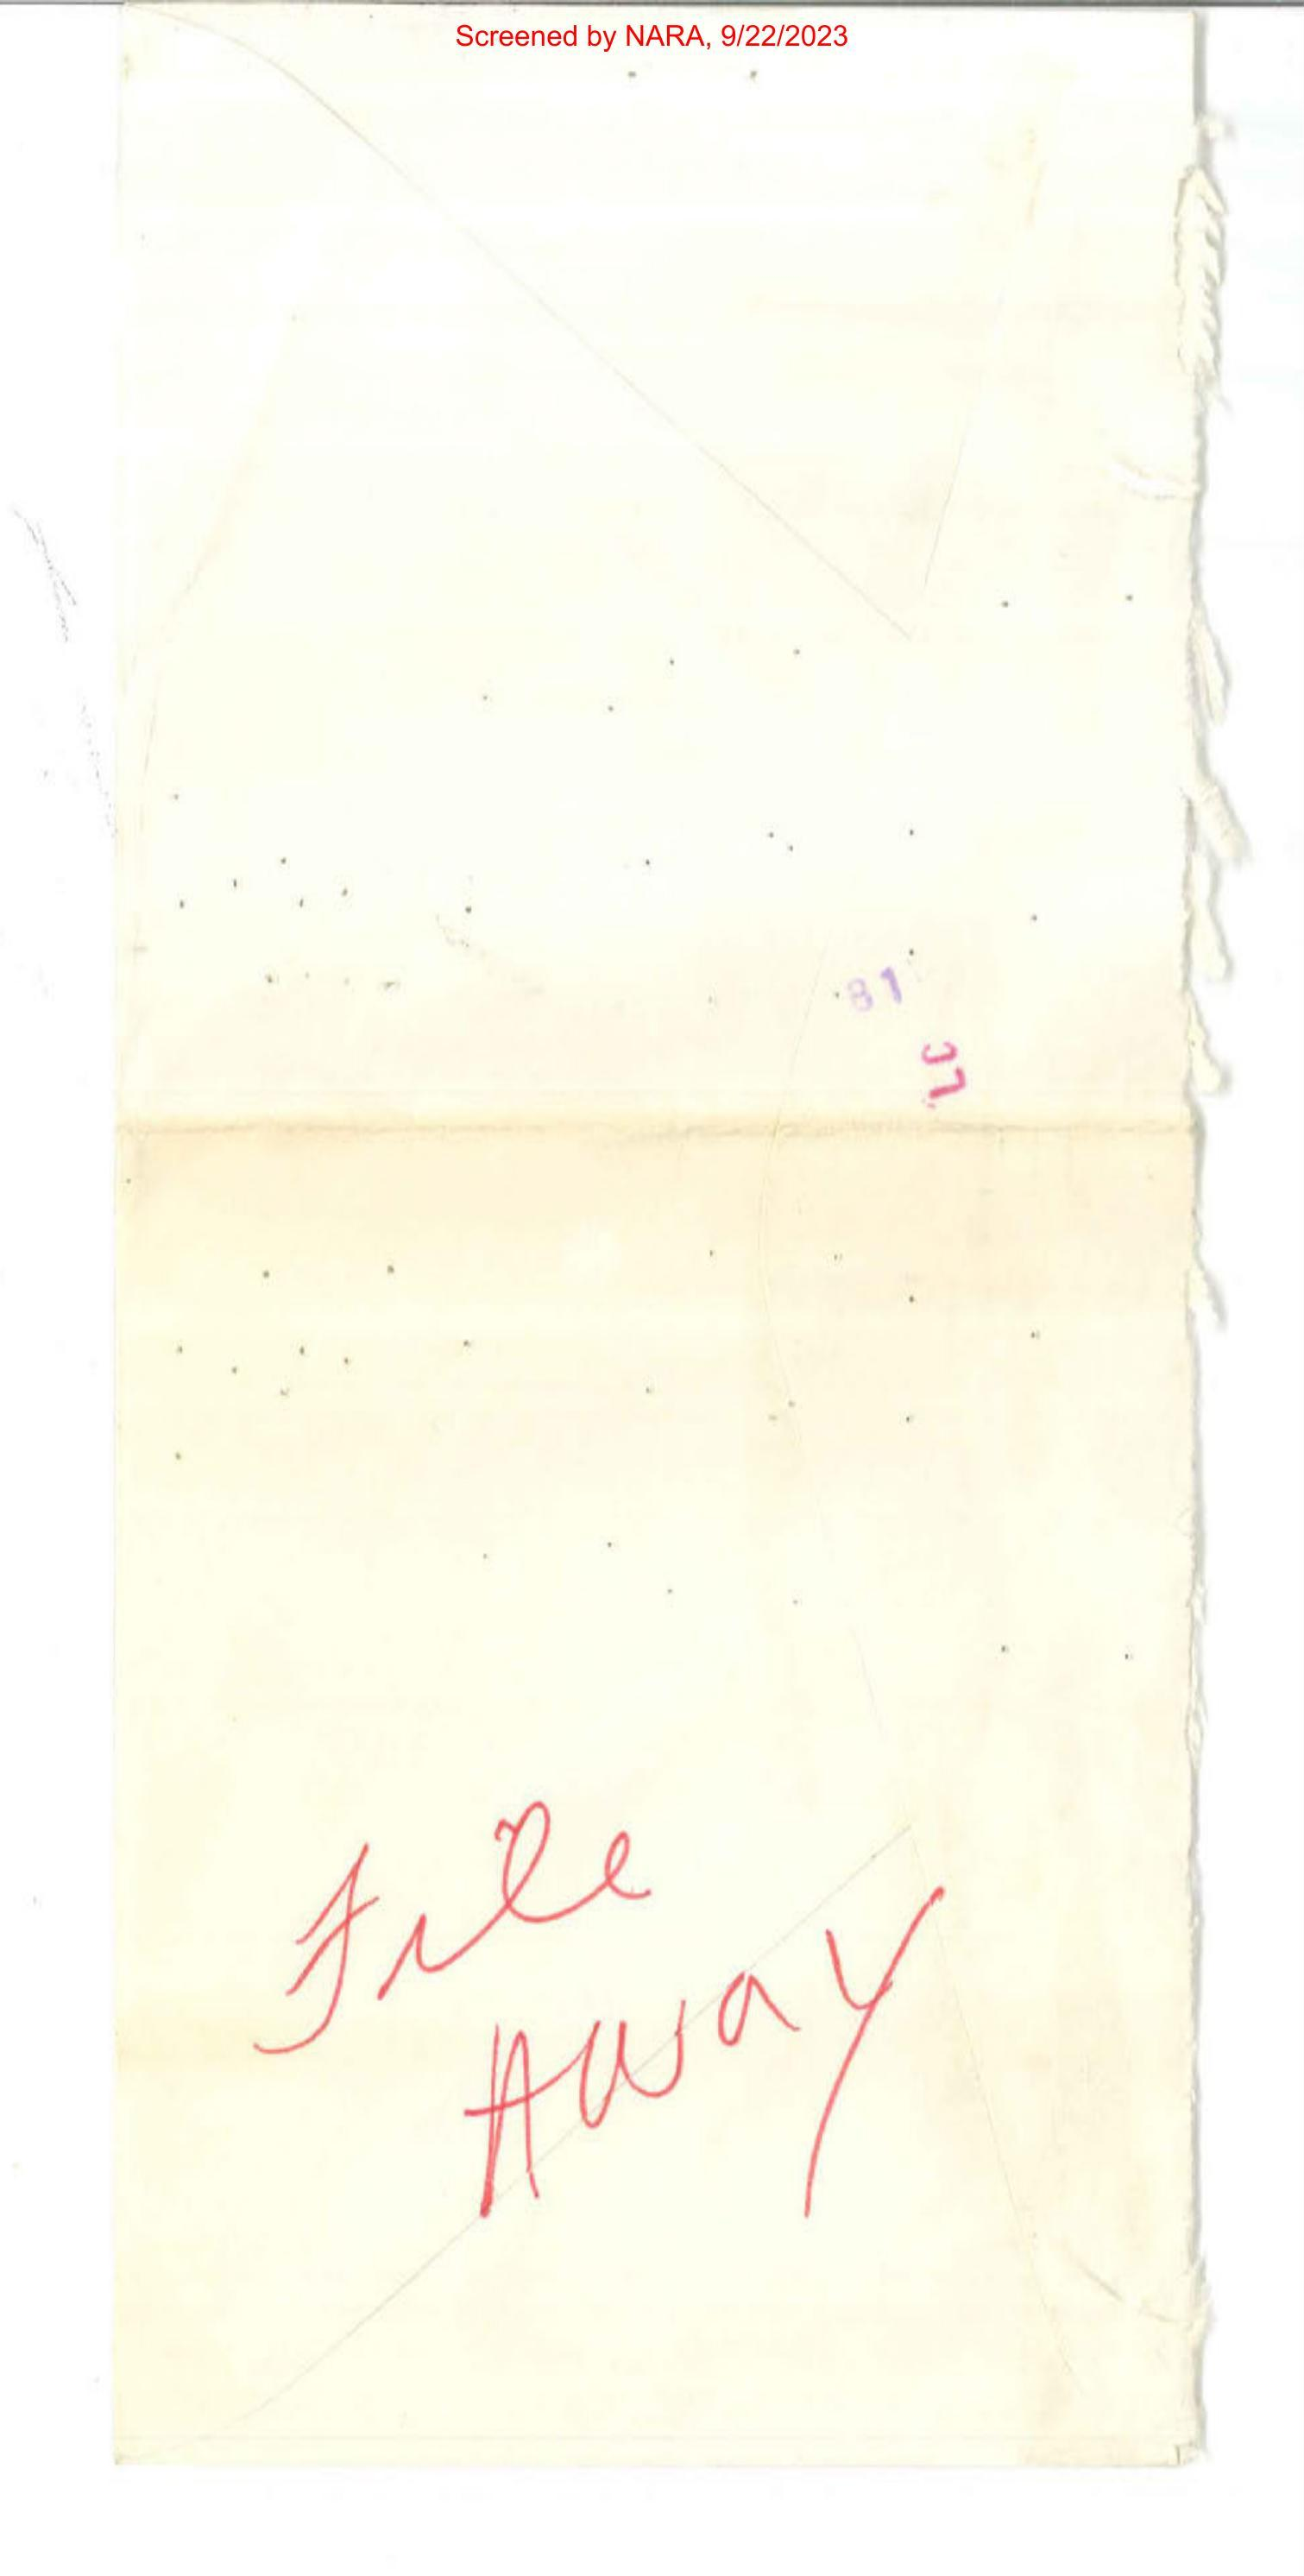 Screened by NARA, 9/22/2023
81
37
File
Away